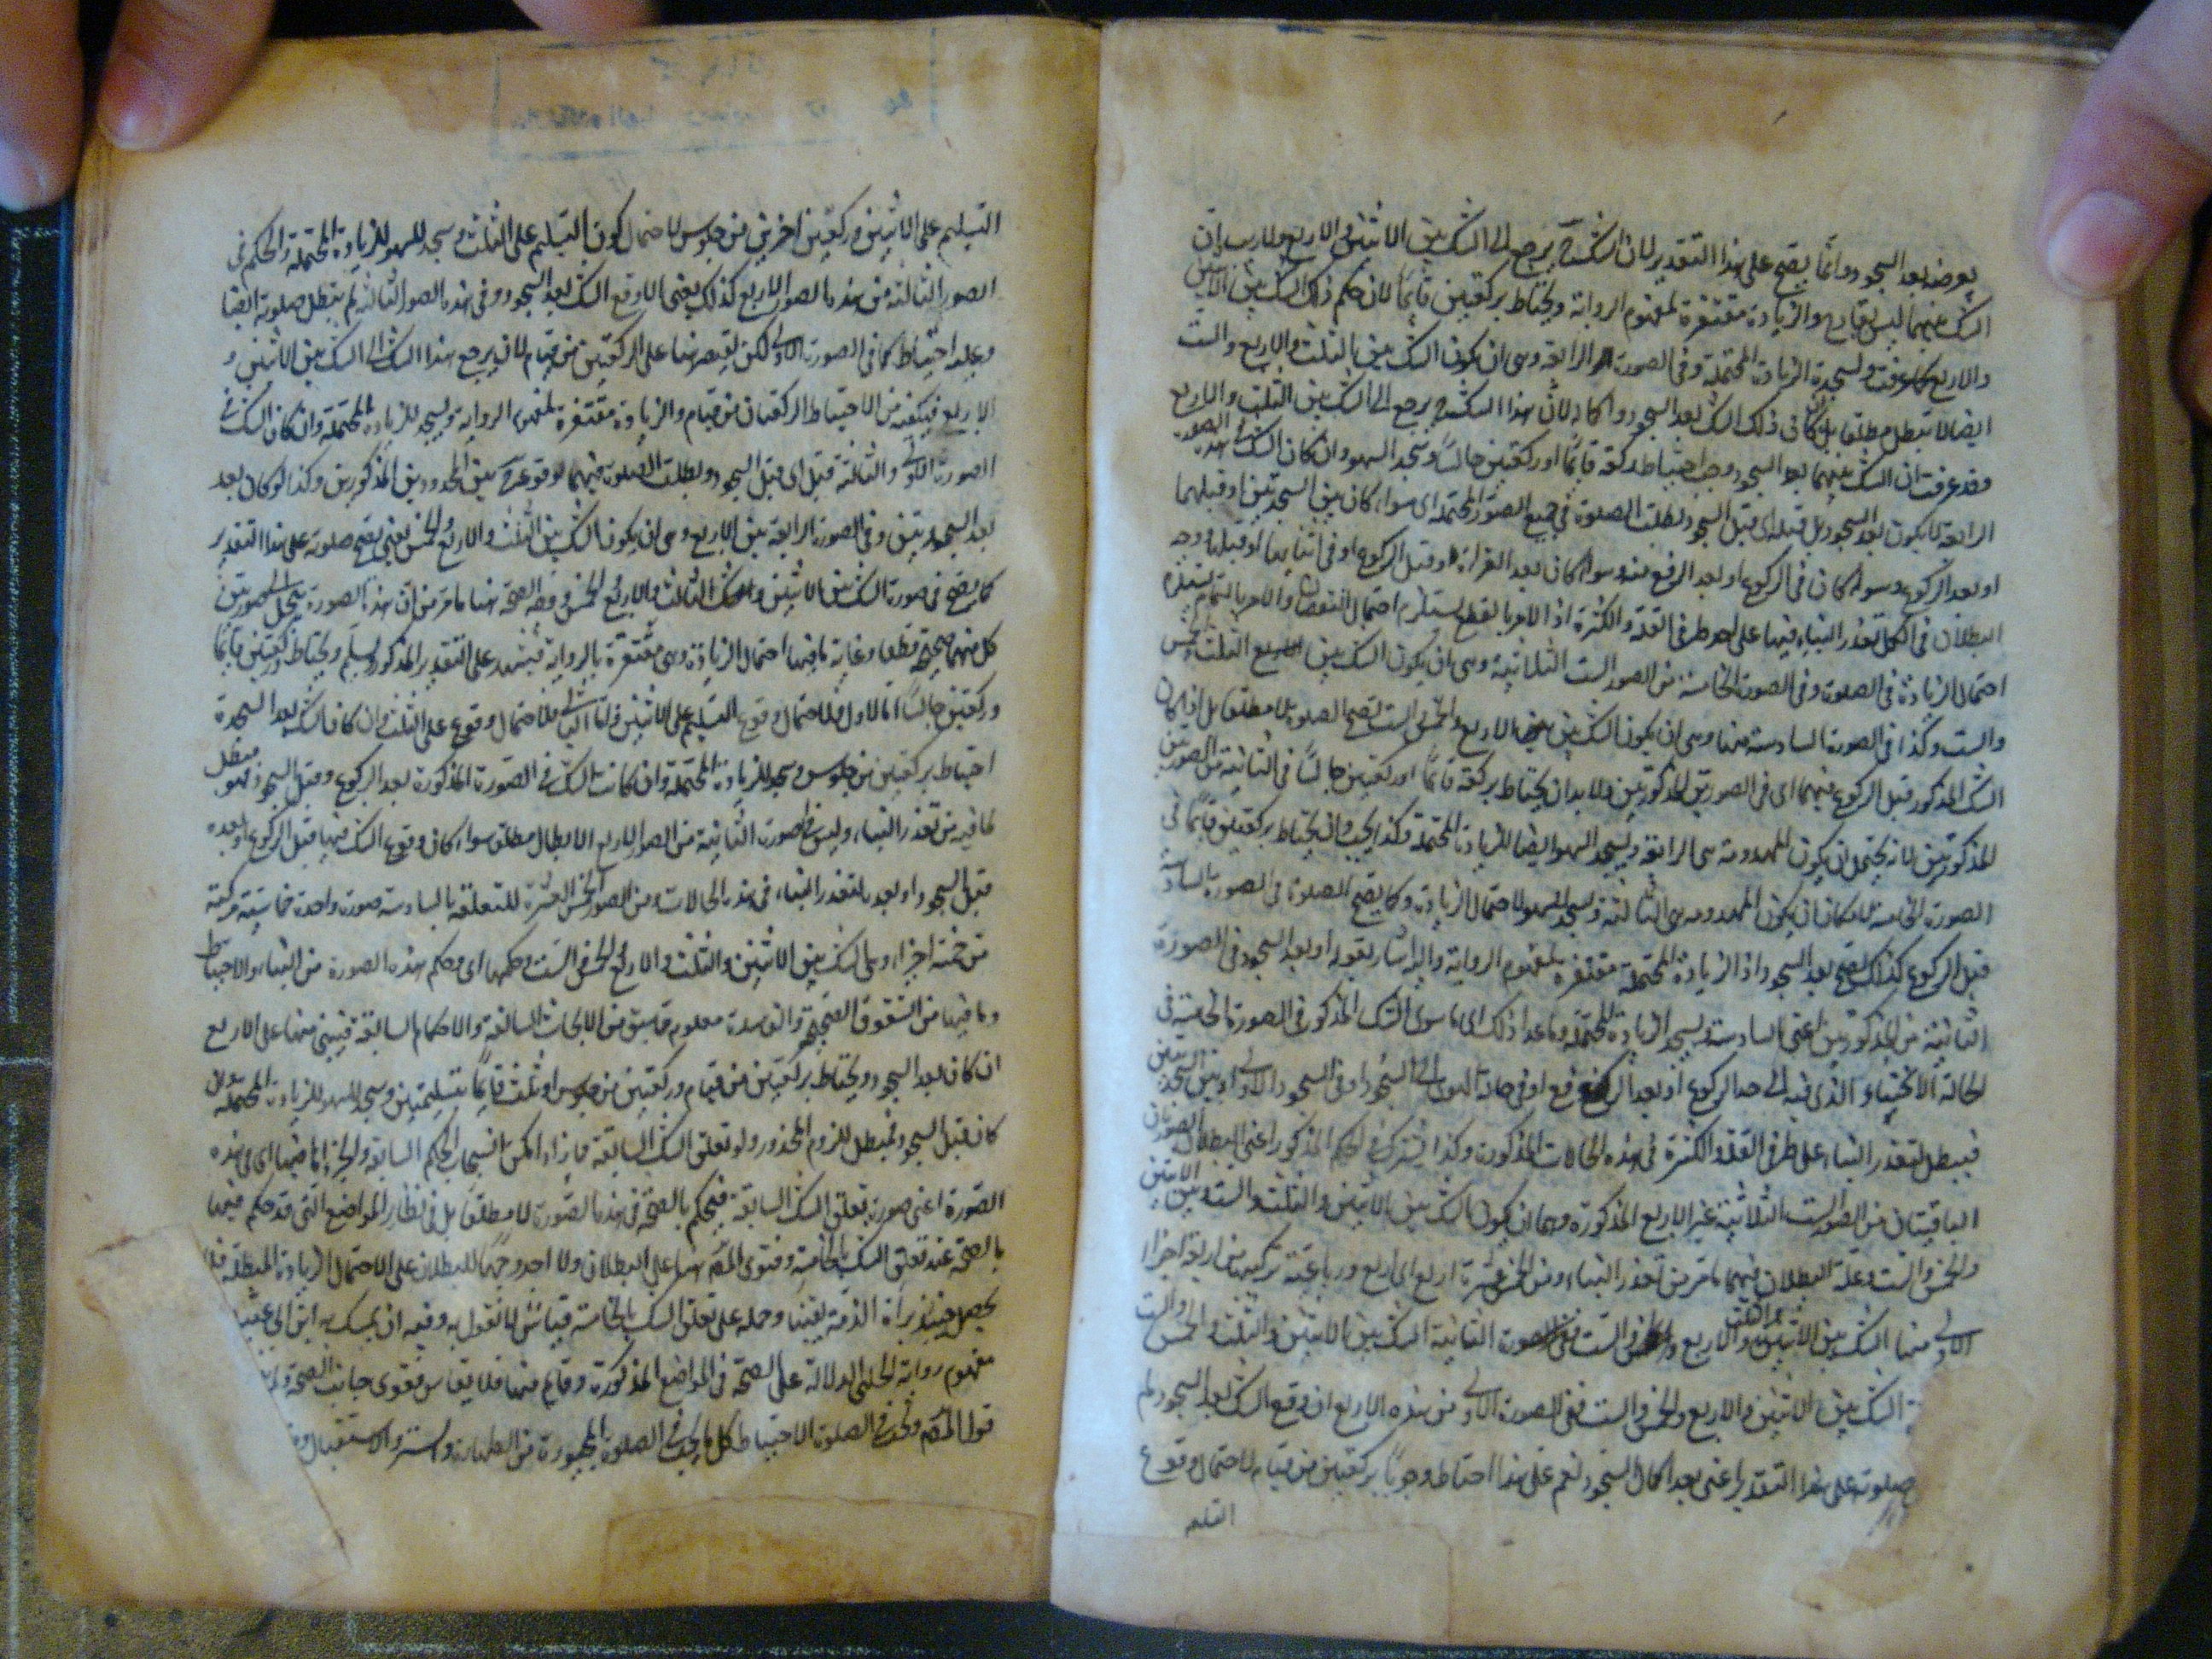 بعروضه بعد السجود دائما يصح على هذا التقدير لان الشك ح يرجع الى الشك بين الاثنين والاربع ولا ريب ان
الشك بينهما ليس بقادح والزيادة مغتفرة لمفهوم الرواية ويحتاط بركعتين قائما لان حكم ذلك الشك بين الاثنين
والاربع كما عرفت ويسجد للزيادة المحتملة وفى الصورة الرابعة وهى ان يكون الشك بين الثلث والاربع والست
ايضا لا تبطل مطلقا بل كان ذلك الشك بعد السجود واكماله لان هذا الشك ح يرجع الى الشك بين الثلث والاربع
وقد عرفت ان الشك بينهما بعد السجود وجب احتياط ركعة قائما او ركعتين جالسا وسجد للسهو وان كان الشك فى هذه الصورة
الرابعة لا يكون بعد السجود بل قبله اى قبل السجود بطلت الصلوة فى جميع الصور المحتملة اى سواء كان بين السجدتين او قبلهما
او بعد الركوع وسواء كان فى الركوع او بعد الرفع منه وسواء كان بعد القراءة او قبل الركوع او فى اثنائها او قبلها ووجه
البطلان فى الكل تعذر البناء فيها على احد طرفى القلة والكثرة اذ الامر بالقطع يستلزم احتمال النقصان والامر بالتمام يستلزم
احتمال الزيادة فى الصلوة وفى الصورة الخامسة من الصور الست الثلاثية وهى ان يكون الشك بين الثلث والخمس
والست وكذا فى الصورة السادسة منها وهى ان يكون الشك بين الاربع والخمس والست تصح الصلوة لا مطلقا بل اذا كان
الشك المذكور قبل الركوع فيهما اى فى الصورتين المذكورتين ولا بد ان يحتاط بركعة قائما او ركعتين جالسا فى الثانية من الصورتين
المذكورتين لانه يحتمل ان يكون المهدومة هى الرابعة ويسجد للسهو ايضا للزيادة المحتملة وكذا يجب ان يحتاط بركعتين قائما فى
الصورة الخامسة لامكان ان يكون المهدومة هى الثالثة ويسجد للسهو لاحتمال الزيادة وكما يصح الصلوة فى الصورة السادسة
قبل الركوع كذلك يصح بعد السجود اذ الزيادة المحتملة مغتفرة بمفهوم الرواية واليه اشار بقوله او بعد السجود فى الصورة
الثانية من المذكورتين اعنى السادسة ويسجد للزيادة المحتملة وما عدا ذلك اى ما سوى الشك المذكور فى الصورة الخامسة فى
لحالة الانحناء الذى فيه الى حد الركوع او بعد الرفع او فى حالة الهوى الى السجود او فى السجود الاولى او بين السجدتين
فيبطل لتعذر البناء على طرفى القلة والكثرة فى هذه الحالات المذكورة وكذا يشترك فى الحكم المذكور اعنى البطلان الصورتان
الباقيتان من الصور الست الثلاثية غير الاربع المذكورة وهما ان يكون الشك بين الاثنين والثلث والست وبين الاثنين
والخمس والست وعلة البطلان فيهما ما مر من تعذر البناء ومن الخمس عشرة اربع اى اربع صور رباعية تركبت من اربعة اجزاء
الاولى منها الشك بين الاثنين والاربع والخمس والست الصورة الثانية الشك بين الاثنين والثلث والخمس والست
الشك بين الاثنين والاربع والخمس والست ففى الصورة الاولى من هذه الاربع ان وقع الشك بعد السجود لم
صلوته على هذا التقدير اعنى بعد اكمال السجود نعم على هذا احتاط وجوبا بركعتين من قيام لاحتمال وقوع
التسليم
التسليم على الاثنين وركعتين اخريين من جلوس لاحتمال كون التسليم على الثلث وسجد للسهو للزيادة المحتملة والحكم فى
الصورة الثالثة من هذه الصور الاربع كذلك يعنى اذا وقع الشك بعد السجود وفى هذه الصور الثالثة لم يبطل صلوته ايضا
وعليه احتياط كما فى الصورة الاولى لكن يقتصر هنا على الركعتين من قيام لانه يرجع هذا الشك الى الشك بين الاثنين و
الاربع فيكفيه من الاحتياط الركعتان من قيام والزيادة مغتفرة لمفهوم الرواية ويسجد للزيادة المحتملة وان كان الشك فى
الصورة الاولى والثالثة قبل اى قبل السجود بطلت الصلوة فيهما لوقوعه بين المحذورين المذكورين وكذا لو كان بعد
بعد السجدتين وفى الصورة الرابعة من الاربع وهى ان يكون الشك بين الثلث والاربع والخمس يعنى يصح صلوته على هذا التقدير
كما يصح فى صورة الشك بين الاثنين والثلث والاربع والخمس وجه الصحة هنا ما مر من ان هذه الصورة ينحل الى صورتين
كل منهما صحيحة قطعا وغاية ما فيها احتمال الزيادة وهى مغتفرة بالرواية فيتشهد على التقدير المذكور ويسلم ويحتاط بركعتين قائما
وركعتين جالسا اما الاول فلاحتمال وقوع التسليم على الاثنين واما الثانى فلاحتمال وقوع على الثلث وان كان الشك بعد السجدة
احتياط بركعتين من جلوس وسجد للزيادة المحتملة وان كانت الشك فى الصورة المذكورة بعد الركوع وقبل السجود فهو مبطل
لما فيه من تعذر البناء وليس فى صورة الثانية من الصور الاربع الا الابطال مطلقا سواء كان وقوع الشك فيها قبل الركوع او بعده
قبل السجود او بعده لتعذر البناء فى هذه الحالات ومن الصور الخمس العشرة للمتعلقة بالسادسة صورة واحدة خماسية مركبة
من خمسة اجزاء وهى الشك بين الاثنين والثلث والاربع والخمس والست وحكمها اى حكم هذه الصورة من البناء والاحتياط
وما فيها من الشقوق الصحيحة والفاسدة معلوم مما سبق من الابحاث السالفة والاحكام السابقة فيبنى منها على الاربع
ان كان بعد السجود ويحتاط بركعتين من قيام وركعتين من جلوس او ثلث قائما بتسليمتين وسجد للسهو للزيادة المحتملة وان
كان قبل السجود فمبطل للزوم المحذور ولو تعلق الشك السابعة فما زاد امكن انسحاب الحكم السابق والخبر الماضى اى فى هذه
الصورة اعنى صورة تعلق الشك السابعة فيحكم بالصحة فى هذه الصورة لا مطلقا بل فى نظائر المواضع التى قد حكم فيها
بالصحة عند تعلق الشك بالخامسة وفتوى المصنف هنا على البطلان ولا اجد وجها للبطلان على الاحتمال الزيادة المبطلة فلا
يحصل حينئذ براءة الذمة يقينا وحمله على تعلق الشك بالخامسة قياس لا نقول به وفيه ان
مفهوم رواية الحلبى الدلالة على الصحة فى المواضع المذكورة وقائم فيها فلا يقاس فقوى جانب الصحة
قول المصنف ويجب فى الصلوة الاحتياط كل ما يجب فى الصلوة المجبورة من الطهارة والستر والاستقبال